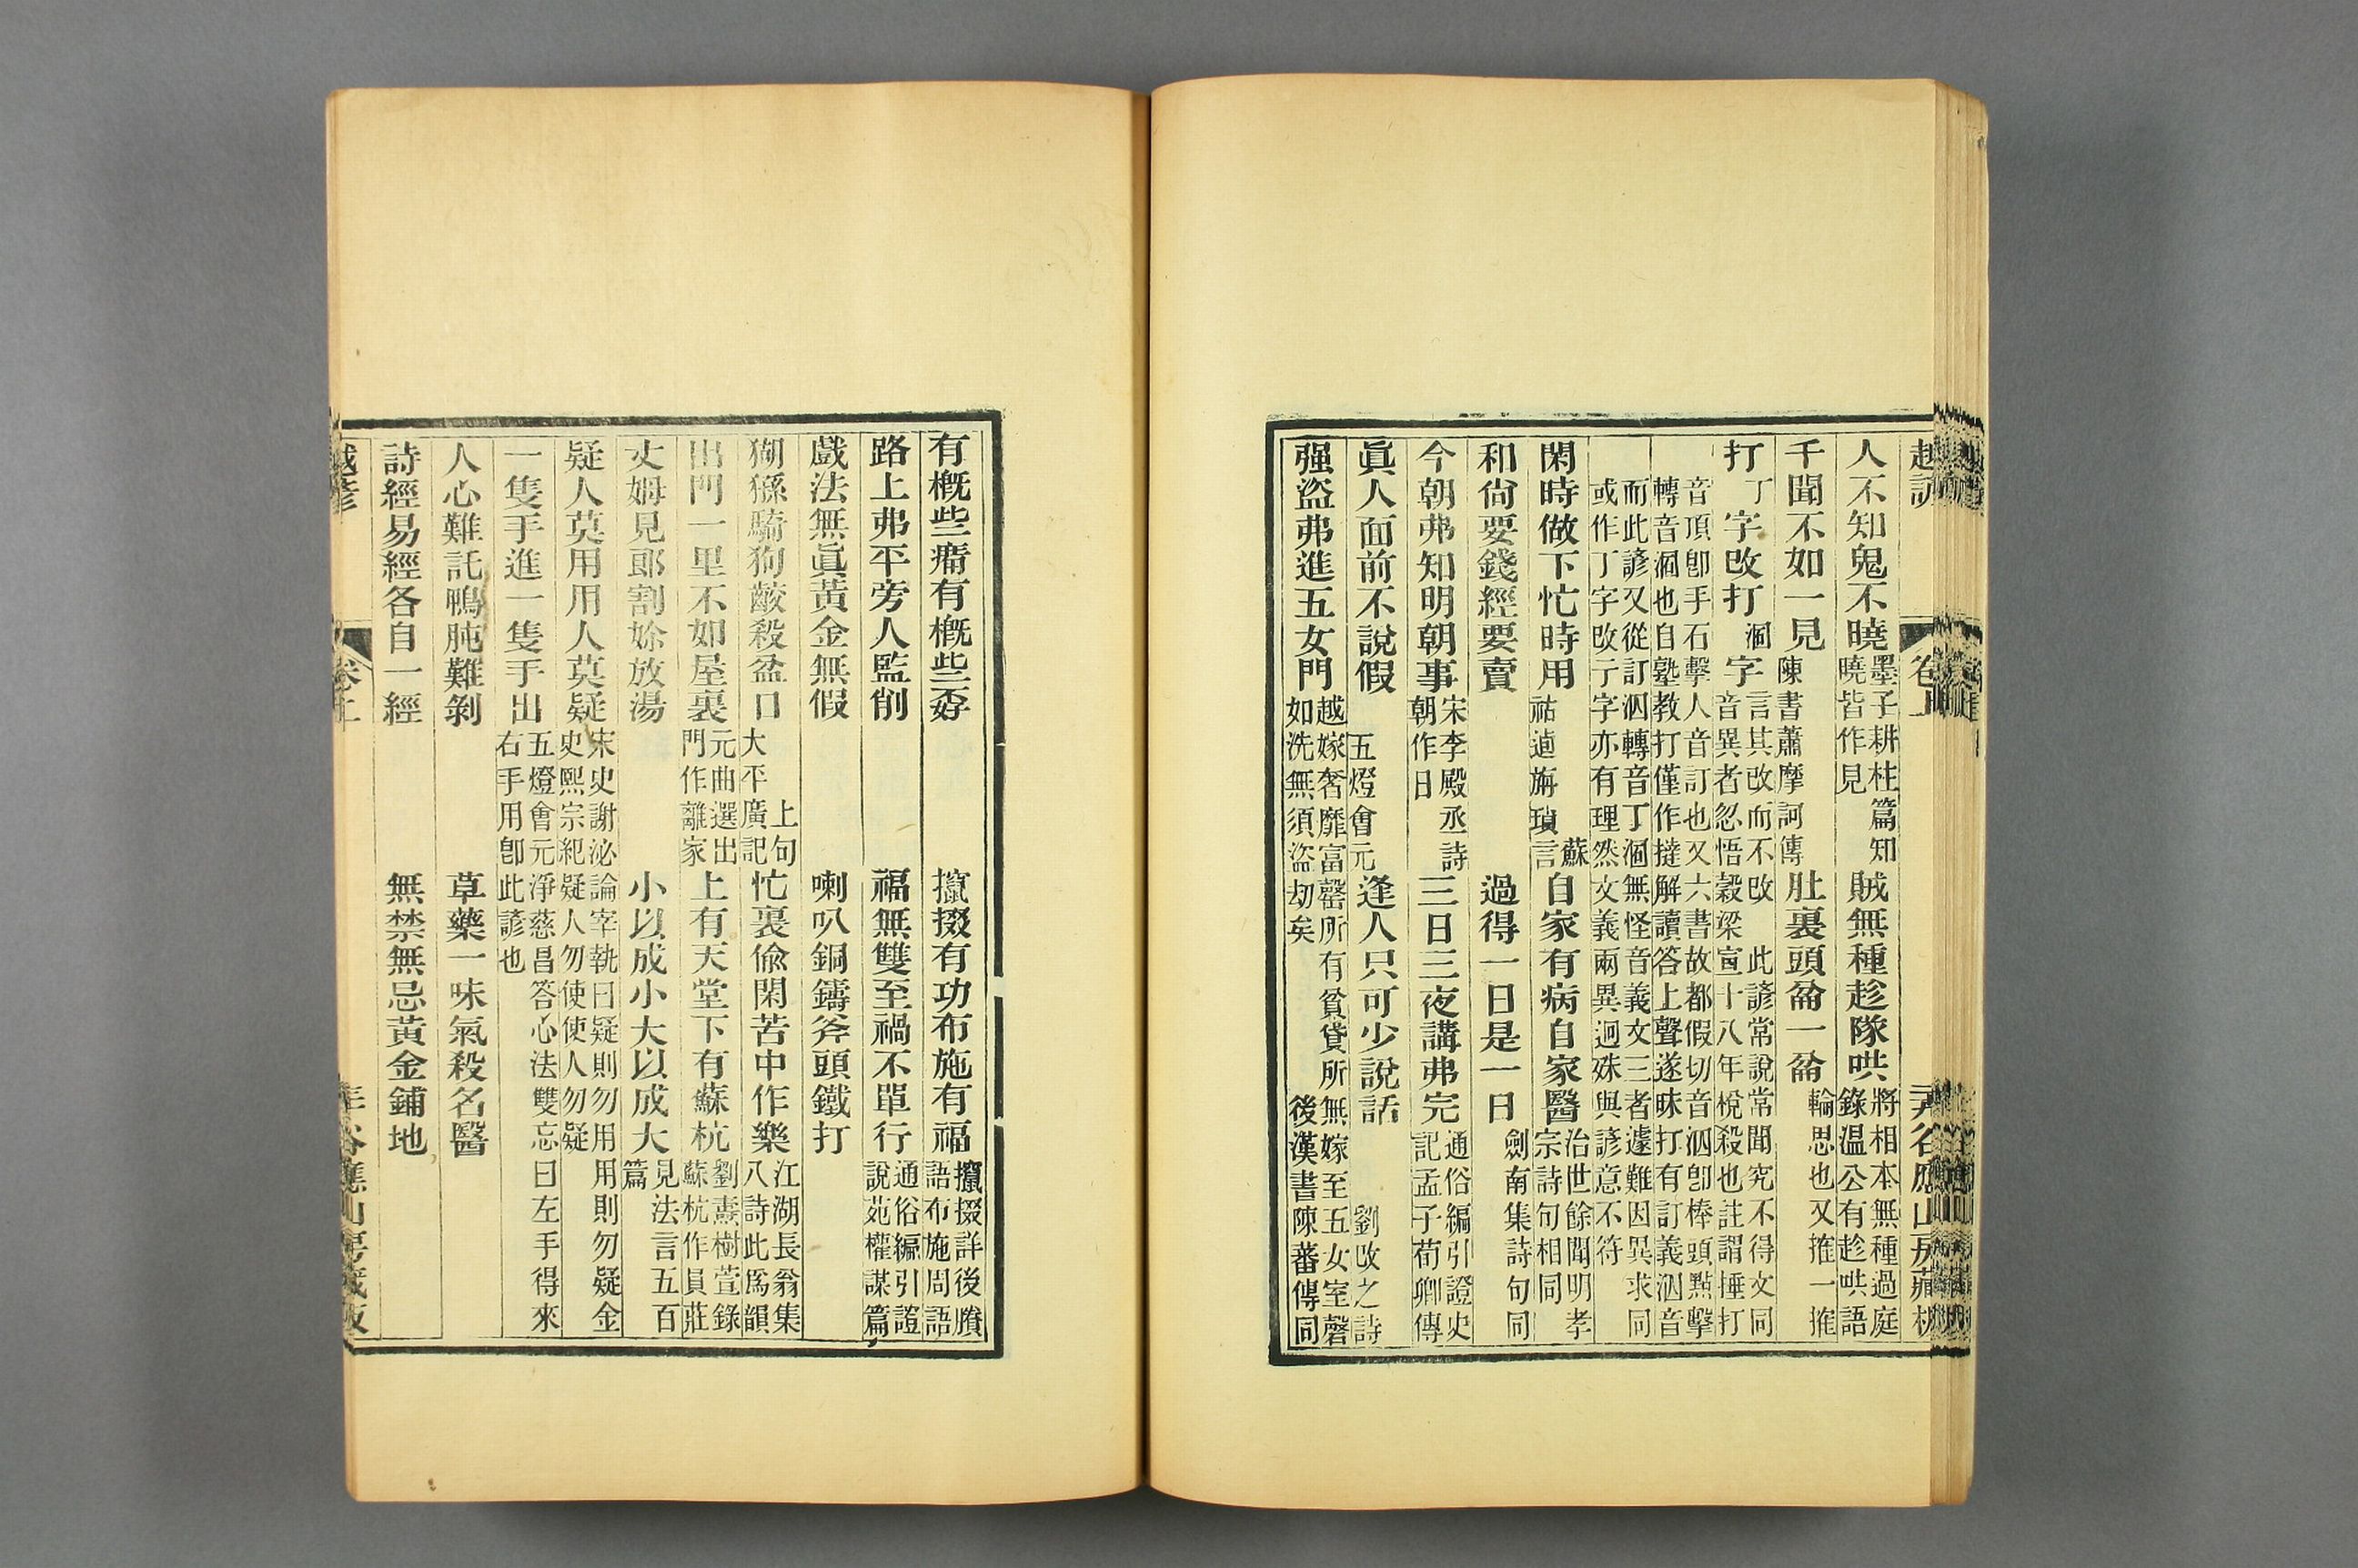 越諺 卷上 谷應山房藏板
人不知鬼不曉墨子耕柱篇知曉皆作見 賊無種趁隊哄將相本無種過庭錄溫公有趁哄語
千聞不如一見陳書蕭摩訶傳 肚裏頭侖一侖輪思也又搉一搉
打丁字改打涸字言其改而不改 此諺常說常聞究不得文同音異者忽悟穀梁宣十八年梲殺也註謂捶打
音頂卽手石擊人音訂也又六書故都假切音泗卽棒頭點擊轉音涸也自塾教打僅作撻解讀答上聲遂昧打有訂義泗音
而此諺又從訂泗轉音丁涸無怪音義文三者遽難因異求同或作丁字改亍字亦有理然文義兩異迥殊與諺意不符
閑時做下忙時用蘇祐逌旃瑣言 自家有病自家醫治世餘聞明孝宗詩句相同
和尙要錢經要賣 過得一日是一日劍南集詩句同
今朝弗知明朝事宋李殿丞詩朝作日 三日三夜講弗完通俗編引證史記孟子荀卿傳
眞人面前不說假五燈會元 逢人只可少說話劉改之詩
强盜弗進五女門越嫁奢靡富罄所有貧貸所無嫁至五女室磬如洗無須盜刧矣 後漢書陳蕃傳同
有槪些癠有槪些孬 擸掇有功布施有福擸掇詳後賸語布施周語
路上弗平旁人監削 福無雙至禍不單行通俗編引證說苑權謀篇
戲法無眞黃金無假 喇叭銅鑄斧頭鐵打
猢猻騎狗齩殺盆口上句大平廣記 忙裏偸閑苦中作樂江湖長翁集八詩此爲韻
出門一里不如屋裏元曲選出門作離家 上有天堂下有蘇杭劉燾樹萱錄蘇杭作員莊
丈姆見郎割妳放湯 小以成小大以成大見法言五百篇
疑人莫用用人莫疑宋史謝泌論宰執曰疑則勿用用則勿疑金史熙宗紀疑人勿使使人勿疑
一隻手進一隻手出五燈會元淨慈昌答心法雙忘曰左手得來右手用卽此諺也
人心難託鴨肫難剝 草藥一味氣殺名醫
詩經易經各自一經 無禁無忌黃金鋪地
越諺 卷上 谷應山房藏板